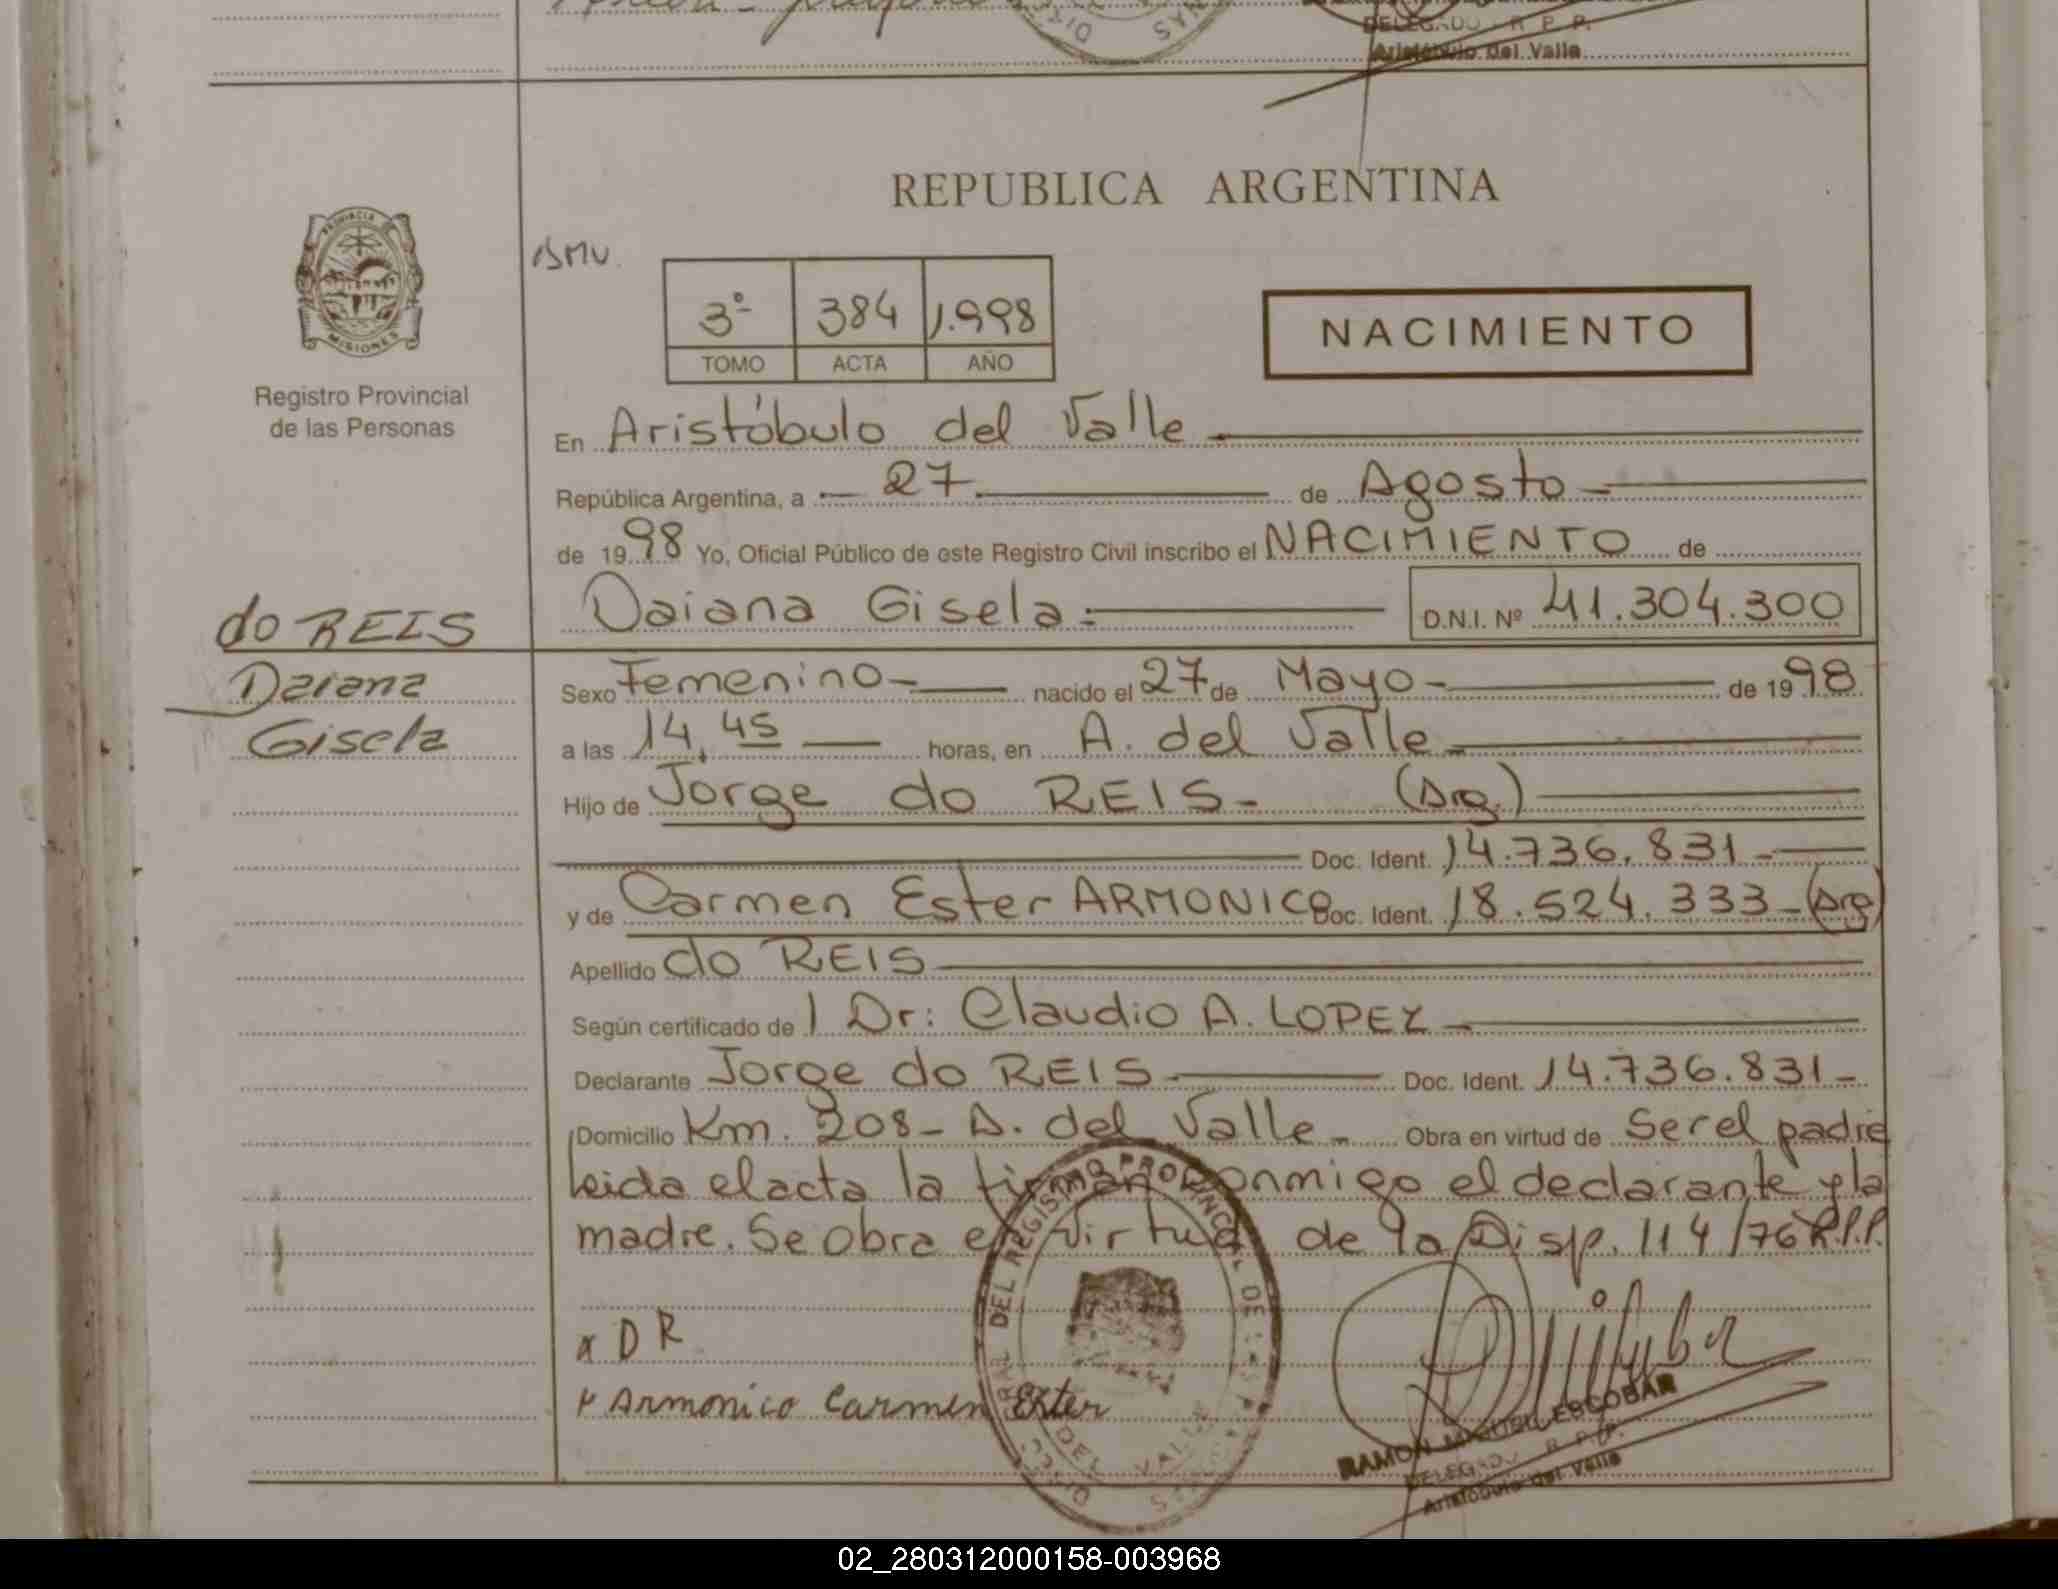 DELEGADO R. P. P.
Aristóbulo del Valle
REPUBLICA ARGENTINA
PROVINCIA
MISIONES
Registro Provincial
de las Personas
3º 384 1.998
TOMO ACTA AÑO
NACIMIENTO
En Aristóbulo del Valle
República Argentina, a 27 de Agosto
de 1998 Yo, Oficial Público de este Registro Civil inscribo el NACIMIENTO de
Daiana Gisela D.N.I. Nº 41.304.300
do REIS
Daiana
Gisela
Sexo Femenino nacido el 27 de Mayo de 1998
a las 14,45 horas, en A. del Valle
Hijo de Jorge do REIS (Arg.)
Doc. Ident. 14.736.831
y de Carmen Ester ARMONICO Doc. Ident. 18.524.333 (Arg)
Apellido do REIS
Según certificado de l Dr: Claudio A. LOPEZ
Declarante Jorge do REIS Doc. Ident. 14.736.831
Domicilio Km. 208 - A. del Valle Obra en virtud de Ser el padre
leida el acta la firman conmigo el declarante y la
madre. Se obra en virtud de la Disp. 114/76 R.P.P.
x D R
x Armonico Carmen Ester
DEL REGISTRO PROVINCIAL DE LAS PERSONAS
DEL VALLE
RAMON MIGUEL ESCOBAR
DELEGADO R. P. P.
Aristóbulo del Valle
02_280312000158-003968